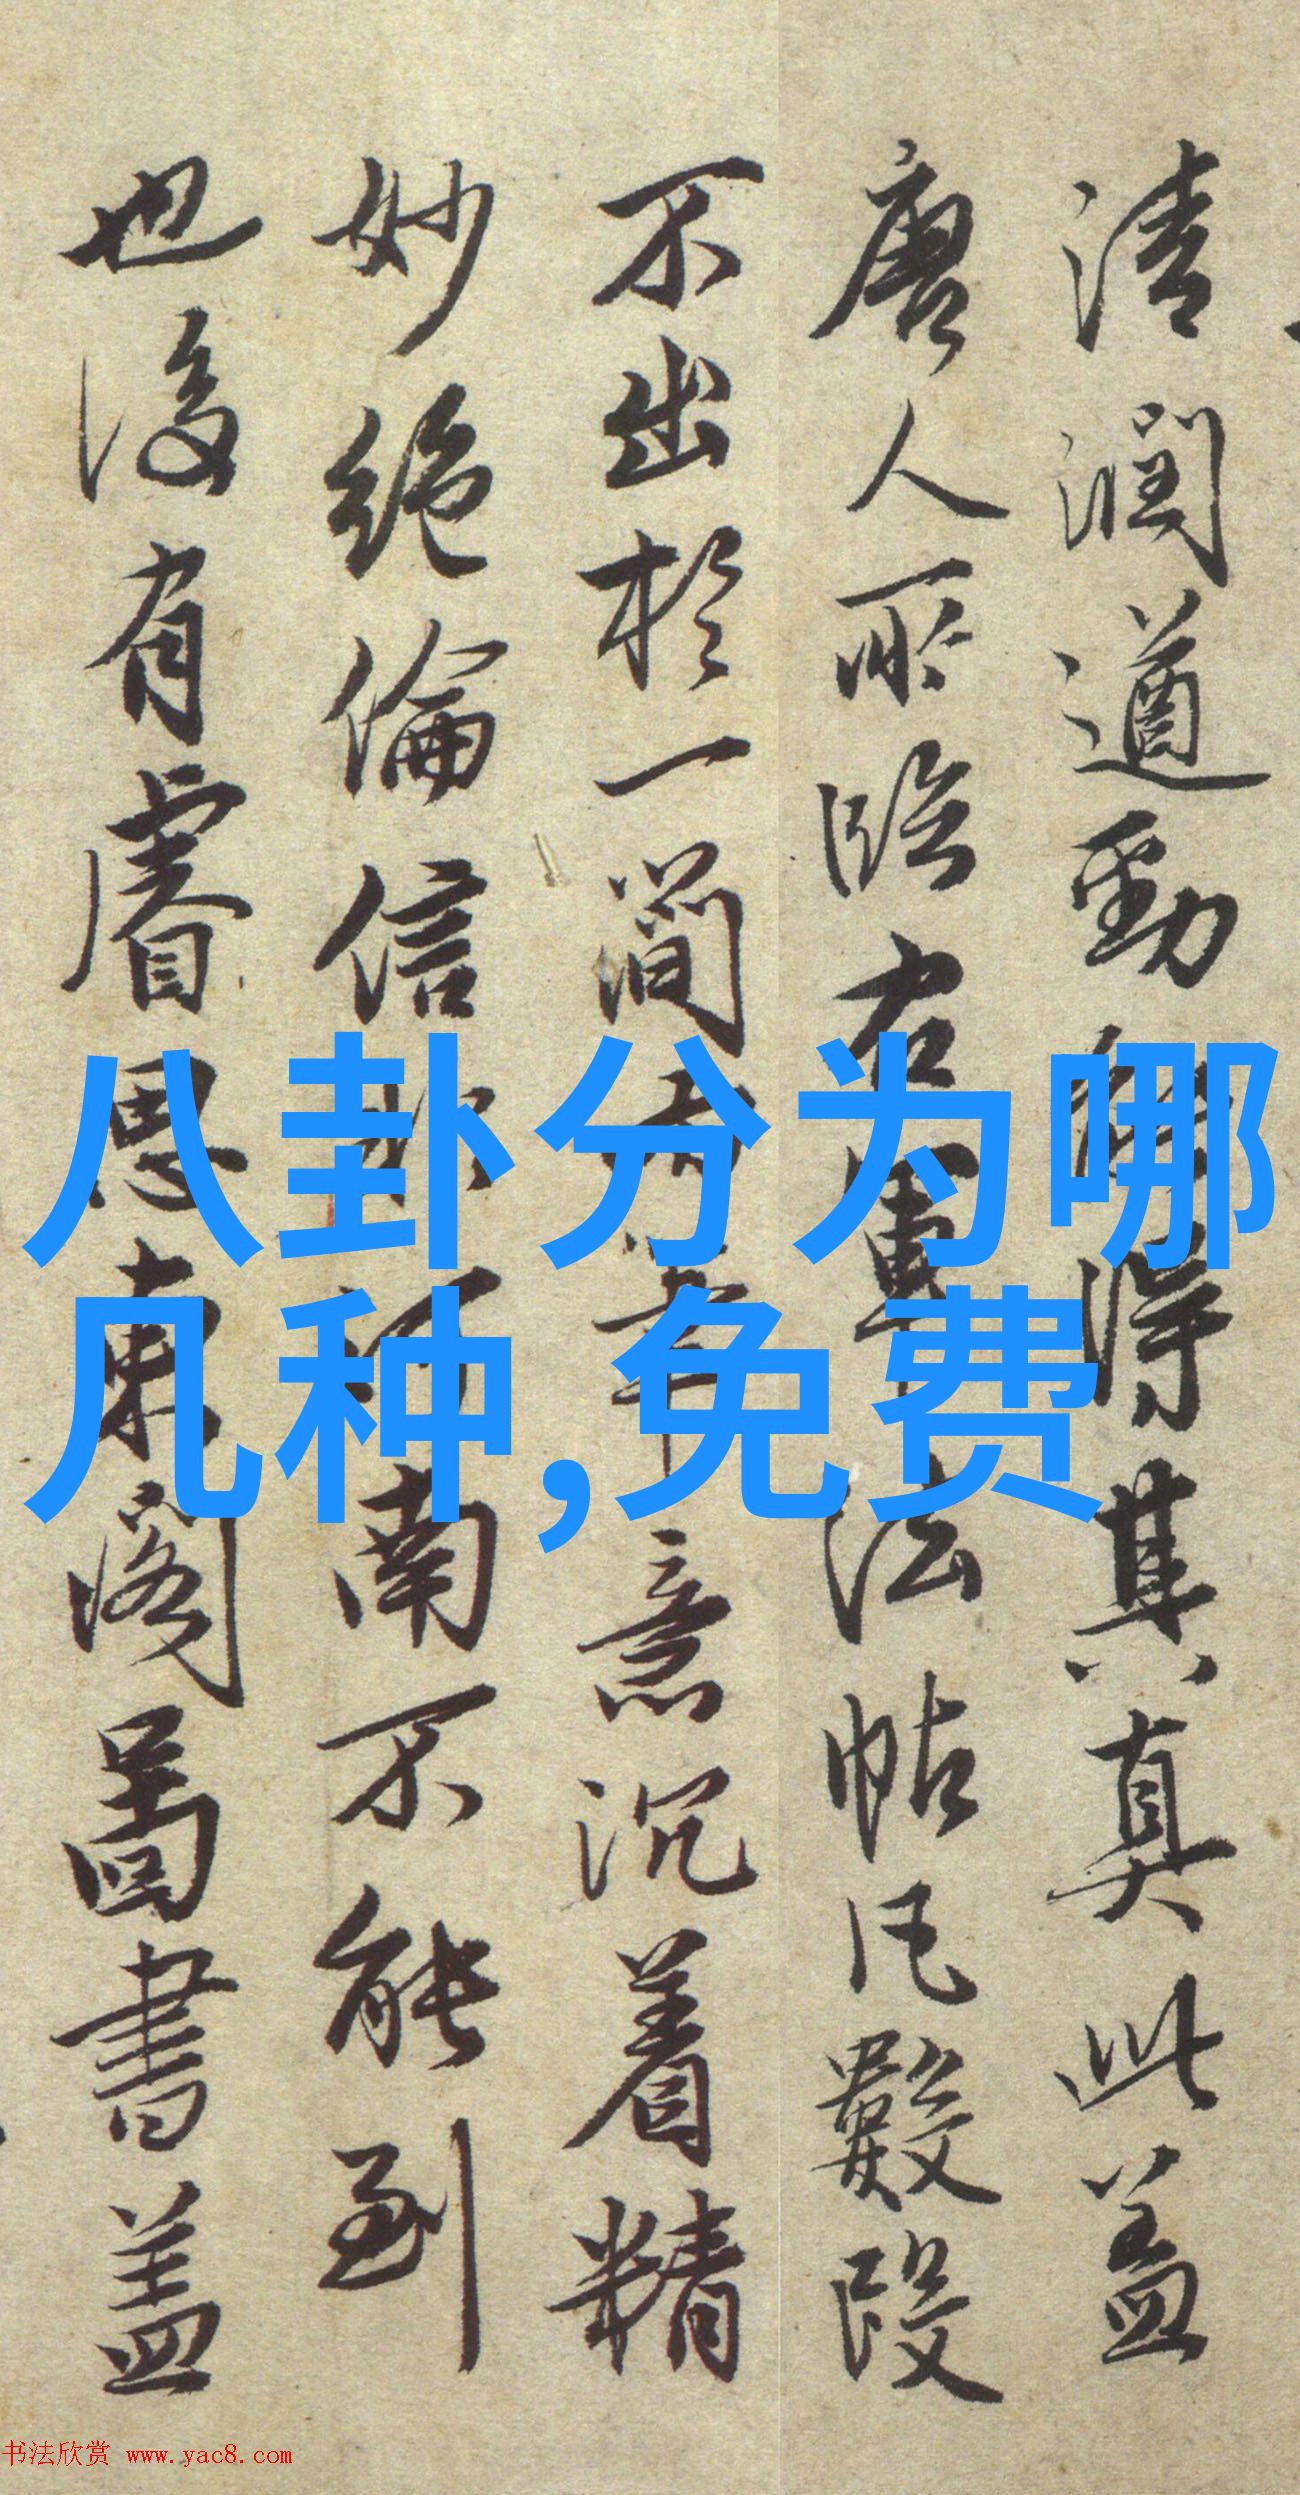 清潤遒勁得其真此蓋
唐人所臨右軍法帖凡數段
不出於一簡意沉着精
妙絶倫信南不能到
也後有睿思東閣圖書蓋
八卦分为哪
几种,免费
书法欣赏 www.yac8.com